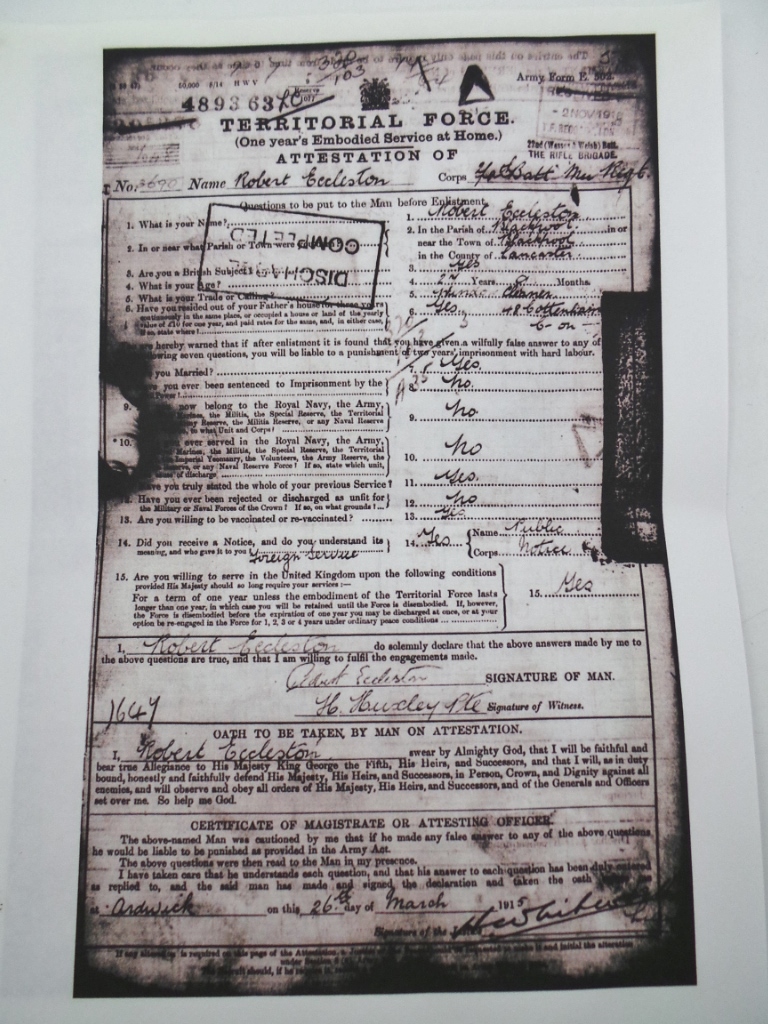 50,000 8/14 H W V
320
103
Army Form E. 502.
4893 63
TERRITORIAL FORCE.
(One year's Embodied Service at Home.)
ATTESTATION OF
THE RIFLE BRIGADE.
No. 3690 Name Robert Eccleston Corps
Questions to be put to the Man before Enlistment.
1. What is your Name? 1. Robert Eccleston
2. In or near what Parish or Town were 2. In the Parish of in or
near the Town of
in the County of Lancaster
DISCHARGE
COMPLETED
3. Are you a British Subject? 3. Yes
4. What is your Age? 4. 27 Years 8 Months.
5. What is your Trade or Calling? 5. Cleaner
6. Have you resided out of your Father's house for three years 6. Yes
continuously in the same place, or occupied a house or land of the yearly
value of £10 for one year, and paid rates for the same, and, in either case,
if so, state where?
hereby warned that if after enlistment it is found that you have given a wilfully false answer to any of
following seven questions, you will be liable to a punishment of two years' imprisonment with hard labour.
you Married? 7. Yes.
you ever been sentenced to Imprisonment by the 8. No.
Power?
9. now belong to the Royal Navy, the Army, 9. No.
Marines, the Militia, the Special Reserve, the Territorial
Reserve, the Militia Reserve, or any Naval Reserve
to what Unit and Corps?
*10. ever served in the Royal Navy, the Army, 10. No
Marines, the Militia, the Special Reserve, the Territorial
Imperial Yeomanry, the Volunteers, the Army Reserve, the
Reserve, or any Naval Reserve Force? If so, state which unit,
of discharge
Have you truly stated the whole of your previous Service? 11. Yes.
12. Have you ever been rejected or discharged as unfit for 12. No
the Military or Naval Forces of the Crown? If so, on what grounds?
13. Are you willing to be vaccinated or re-vaccinated? 13. Yes
14. Did you receive a Notice, and do you understand its 14. Yes Name Public
meaning, and who gave it to you? Corps Notice
Foreign Service
15. Are you willing to serve in the United Kingdom upon the following conditions 15. Yes
provided His Majesty should so long require your services:—
For a term of one year unless the embodiment of the Territorial Force lasts
longer than one year, in which case you will be retained until the Force is disembodied. If, however,
the Force is disembodied before the expiration of one year you may be discharged at once, or at your
option be re-engaged in the Force for 1, 2, 3 or 4 years under ordinary peace conditions
I, Robert Eccleston do solemnly declare that the above answers made by me to
the above questions are true, and that I am willing to fulfil the engagements made.
Robert Eccleston SIGNATURE OF MAN.
1647 H. Huxley Pte Signature of Witness.
OATH TO BE TAKEN BY MAN ON ATTESTATION.
I, Robert Eccleston swear by Almighty God, that I will be faithful and
bear true Allegiance to His Majesty King George the Fifth, His Heirs, and Successors, and that I will, as in duty
bound, honestly and faithfully defend His Majesty, His Heirs, and Successors, in Person, Crown, and Dignity against all
enemies, and will observe and obey all orders of His Majesty, His Heirs, and Successors, and of the Generals and Officers
set over me. So help me God.
CERTIFICATE OF MAGISTRATE OR ATTESTING OFFICER.
The above-named Man was cautioned by me that if he made any false answer to any of the above questions
he would be liable to be punished as provided in the Army Act.
The above questions were then read to the Man in my presence.
I have taken care that he understands each question, and that his answer to each question has been duly entered
as replied to, and the said man has made and signed the declaration and taken the oath
at Ardwick on this 26th day of March 1915
Signature of the